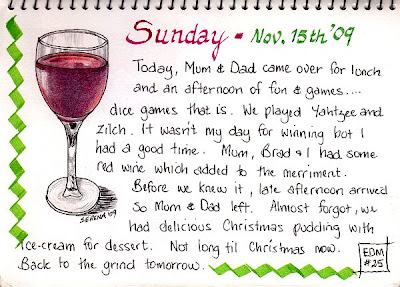 Sunday - Nov. 15th '09
Today, Mum & Dad came over for lunch
and an afternoon of fun & games....
dice games that is. We played Yahtzee and
zilch. It wasn't my day for winning but I
had a good time. Mum, Brad & I had some
red wine which added to the merriment.
Before we knew it, late afternoon arrived
so Mum & Dad left. Almost forgot, we
had delicious Christmas pudding with
ice-cream for dessert. Not long til Christmas now.
Back to the grind tomorrow.
SERENA '09
EDM
#25